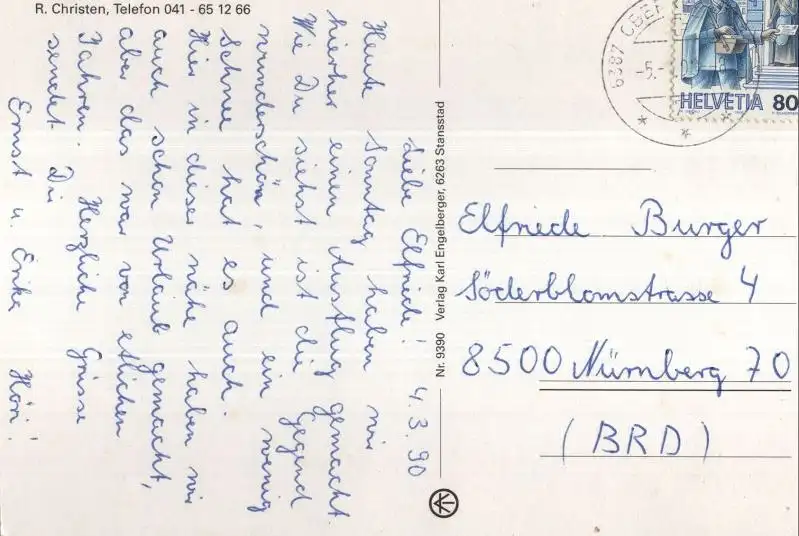 R. Christen, Telefon 041 - 65 12 66
Liebe Elfriede! 4.3.90
Heute Sonntag haben wir
hierher einen Ausflug gemacht
Wie Du siehst ist die Gegend
wunderschön, und ein wenig
Schnee hat es auch.
Hier in dieser nähe haben wir
auch schon Urlaub gemacht,
aber das war vor etlichen
Jahren. Herzliche Grüsse
sendet Dir
Ernst u. Erika
Nr. 9390 Verlag Karl Engelberger, 6263 Stansstad
6387 OBER
-5.-
HELVETIA 80
Elfriede Burger
Söderblomstrasse 4
8500 Nürnberg 70
(BRD)